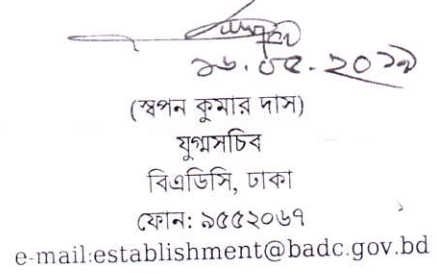 ১৬.০৫.২০১৯
(স্বপন কুমার দাস)
যুগ্মসচিব
বিএডিসি, ঢাকা
ফোন: ৯৫৫২০৬৭
e-mail:establishment@badc.gov.bd